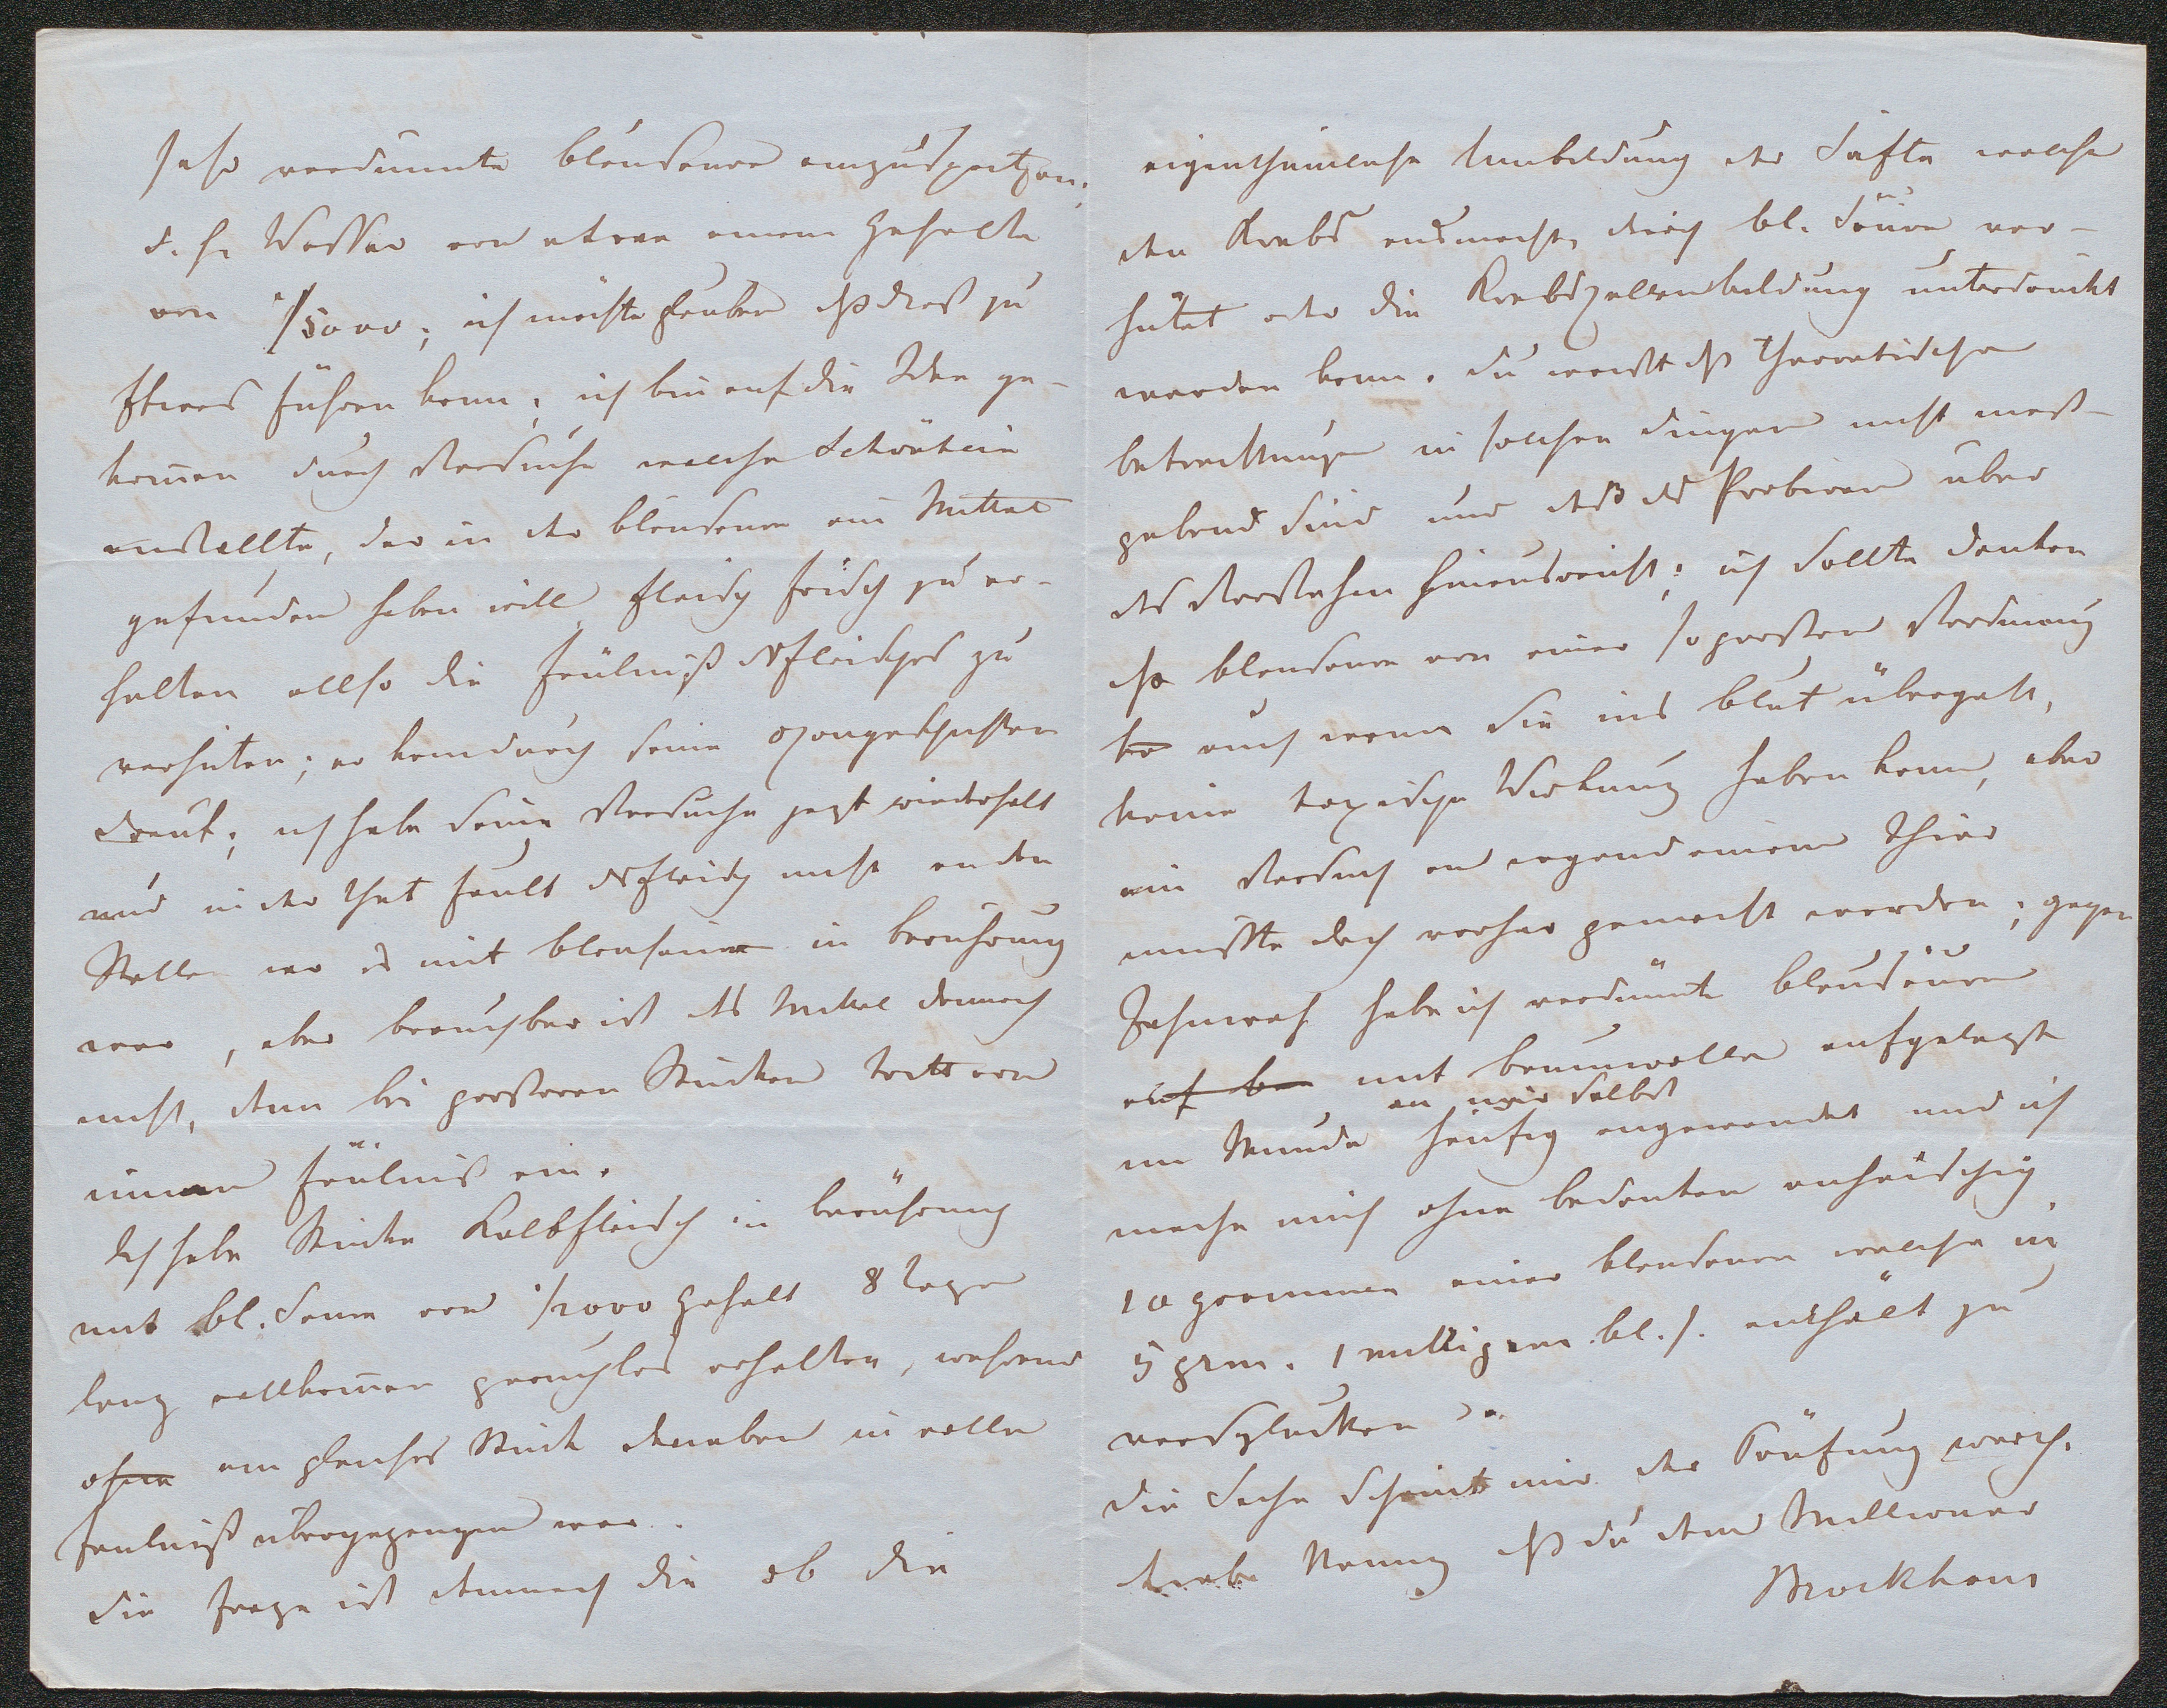 sehr verdünnte Blausäure einzuspritzen,
d. h. Wasser von etwa einem Gehalte
von 1/5000; ich möchte glauben dß dieß zu
Etwas führen kann; ich bin auf die Idee ge-
kom̅en durch Versuche welche Schönbein
anstellte, der in der Blausäure ein Mittel
gefunden haben will Fleisch frisch zu er-
halten allso die Fäulniß ds Fleisches zu
verhüten; er kam durch seine Ozongeschichten
drauf; ich habe seine Versuche jezt wiederholt
und in der That fault ds Fleisch nicht an den
Stellen wo es mit Blausäure in Berührung
war, aber brauchbar ist ds Mittel dennoch
nicht, denn bei großeren Stücken tritt von
innen Fäulniß ein.
Ich habe Stücke Kalbfleisch in Berührung
mit Bl. säure von 1/2000 Gehalt 8 Tage
lang vollkom̅en geruchlos erhalten, während
ohne ein gleiches Stück daneben in volle
Faulniß übergegangen war.
Die Frage ist demnach die ob die
eigenthümliche Umbildung der Säfte welche
den Krebs ausmacht, durch Bl. säure ver-
hütet oder die Krebszellenbildung unterdrückt
werden kann. Du weißt dß theoretische
Betrachtungen in solchen Dingen nicht maß-
gebend sind und daß ds Probiren über
ds Verstehen hinausreicht; ich sollte denken
dß Blausäure von einer so großen Verdünung
auch wenn sie ins Blut übergeht,
keine toxische Wirkung haben kann, aber
ein Versuch an irgend einem Thier
müßte doch vorher gemacht werden; gegen
Zahnweh habe ich verdünnte Blausäure
auf Ba mit Baumwolle aufgelegt
an mir selbst
im Munde häufig angewendet und ich
mache mich ohne Bedenken anheischig
10 grammen einer Blausäure welche in
5 grm. 1 milligram Bl. s. enthält zu
verschlucken.
Die Sache scheint mir der Prüfung werth.
dß du dem Millionär
Brockhaus